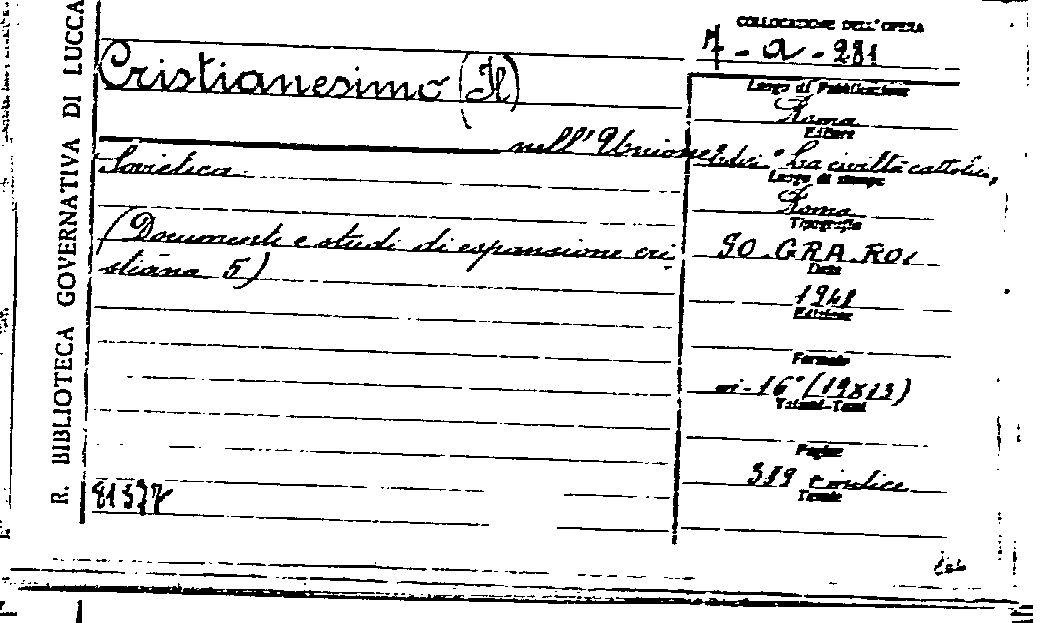 R. BIBLIOTECA GOVERNATIVA DI LUCCA
COLLOCAZIONE DELL'OPERA
7 - a - 281
Cristianesimo (Il)
nell'Unione
Sovietica
(Documenti e studi di espansione cri-
stiana 5)
81377
Luogo di Pubblicazione
Roma
Editore
"La civiltà cattolica"
Luogo di stampa
Roma
Tipografia
SO.GRA.RO.
Data
1948
Edizione
Formato
in-16° (19x13)
Volumi-Tomi
Pagine
389 e indice
Tavole